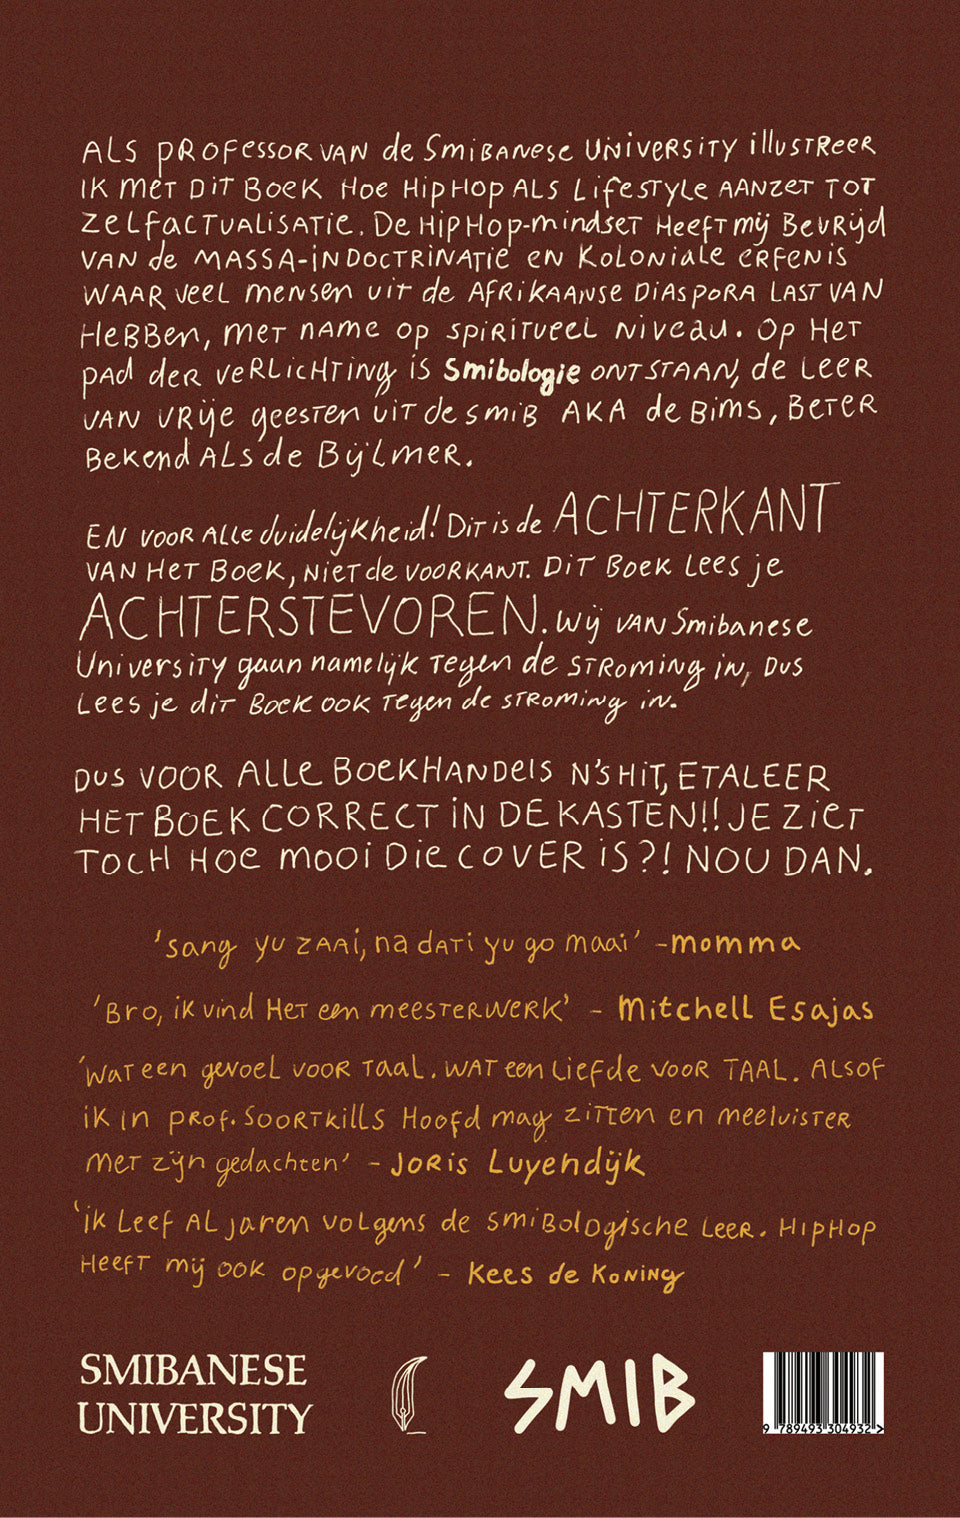 Als professor van de Smibanese University illustreer
ik met dit boek hoe hiphop als lifestyle aanzet tot
zelfactualisatie. De hiphop-mindset heeft mij bevrijd
van de massa-indoctrinatie en koloniale erfenis
waar veel mensen uit de Afrikaanse diaspora last van
hebben, met name op spiritueel niveau. Op het
pad der verlichting is Smibologie ontstaan, de leer
van vrije geesten uit de Smib aka de Bims, beter
bekend als de Bijlmer.
En voor alle duidelijkheid! Dit is de ACHTERKANT
van het boek, niet de voorkant. Dit boek lees je
ACHTERSTEVOREN. Wij van Smibanese
University gaan namelijk tegen de stroming in, dus
lees je dit boek ook tegen de stroming in.
Dus voor alle boekhandels n'shit, etaleer
het boek correct in de kasten!! Je ziet
toch hoe mooi die cover is?! Nou dan.
'sang yu zaai, na dati yu go maai' - momma
'Bro, ik vind het een meesterwerk' - Mitchell Esajas
'Wat een gevoel voor taal. Wat een liefde voor taal. Alsof
ik in prof. Soortkills hoofd mag zitten en meeluister
met zijn gedachten' - Joris Luyendijk
'Ik leef al jaren volgens de smibologische leer. Hiphop
heeft mij ook opgevoed' - Kees de Koning
SMIBANESE
UNIVERSITY
SMIB
9 789493 304932 >